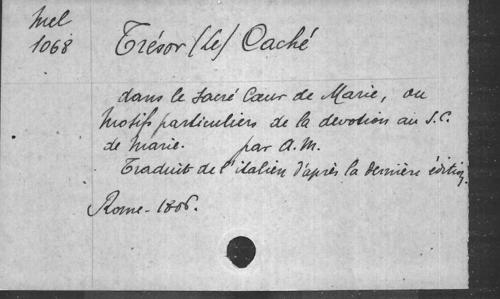 Mel
1068
Trésor (Le) Caché
dans le Sacré Cœur de Marie, ou
Motifs particuliers de la devotion au S.C.
de Marie. par A.M.
Traduit de l'italien d'après la dernière édition.
Rome - 1806.